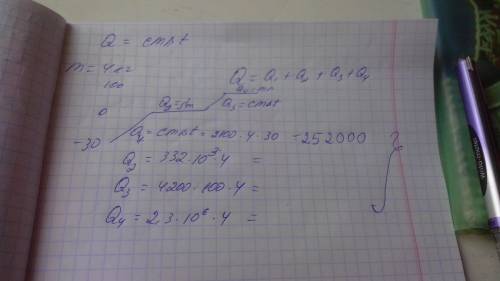 Q = cmΔt
m = 4кг
Q = Q₁ + Q₂ + Q₃ + Q₄
100
Q₄=
0
Q₂=λm
Q₃=cmΔt
-30
Q₁ = cmΔt = 2100·4·30 = 252000
Q₂ = 332·10³·4 =
Q₃ = 4200·100·4 =
Q₄ = 2,3·10⁶·4 =